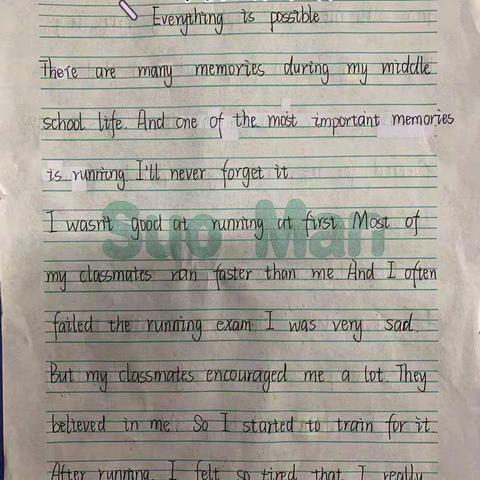 Everything is possible
There are many memories during my middle
school life. And one of the most important memories
is running. I'll never forget it.
I wasn't good at running at first. Most of
my classmates ran faster than me. And I often
failed the running exam. I was very sad.
But my classmates encouraged me a lot. They
believed in me. So I started to train for it.
After running, I felt so tired that I really
Suo Man